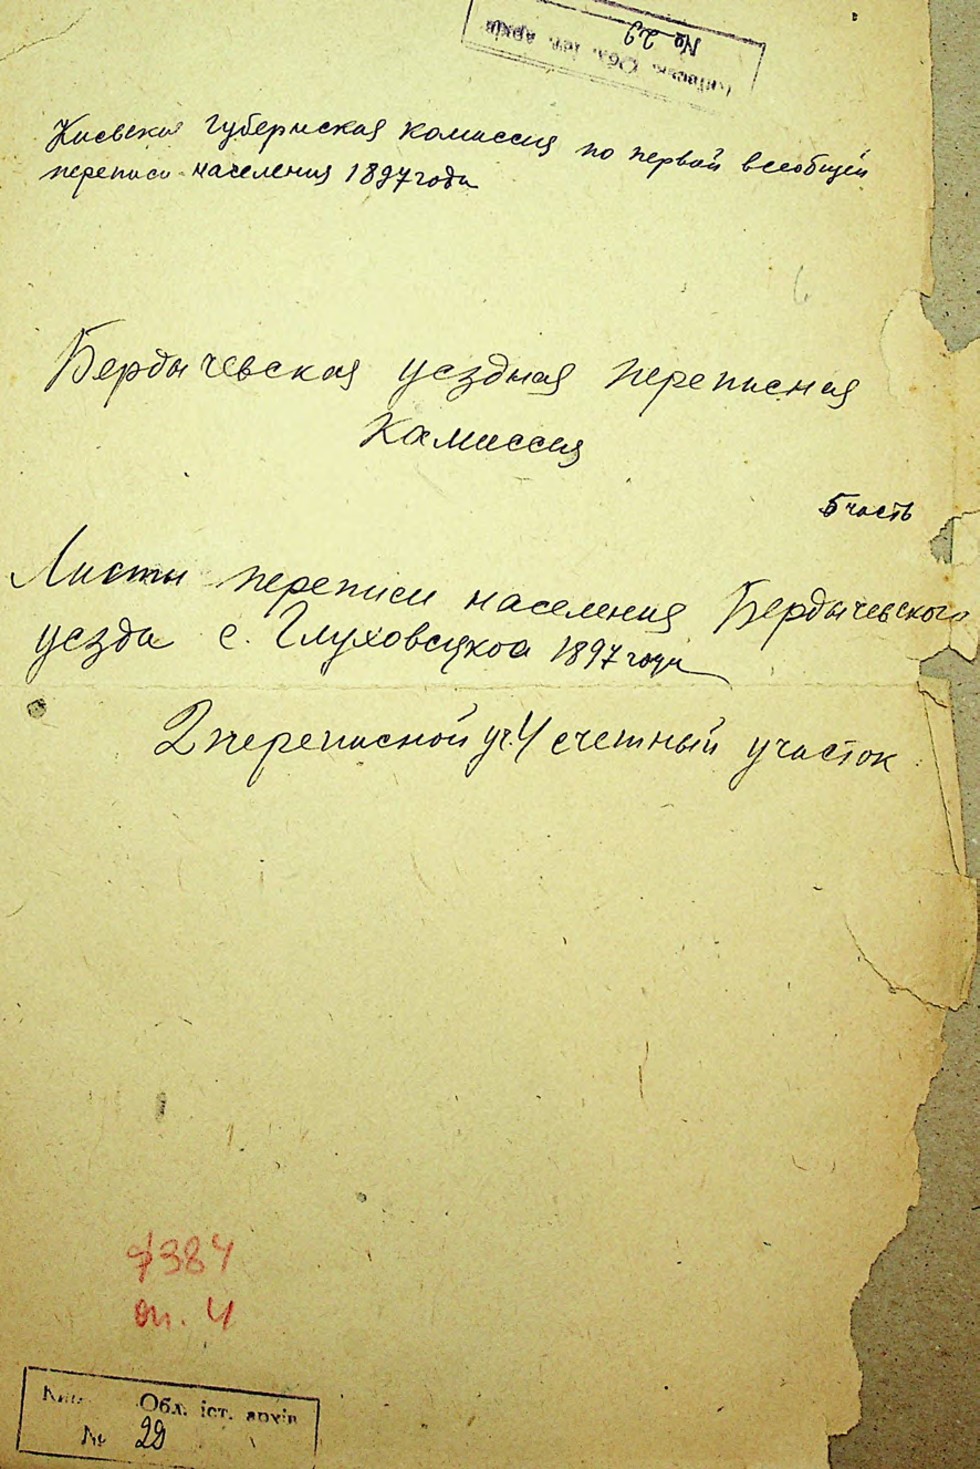 Київськ. Обл. іст. архів
№ 29
Киевская губернская комиссия по первой всеобщей
переписи населения 1897 года
Бердычевская уездная переписная
комиссия
5 часть
Листы переписи населения Бердычевского
уезда с. 1897 года
2 переписной уч. 4 счетный участок
ф 384
оп. 4
Обл. іст. архів
№ 29